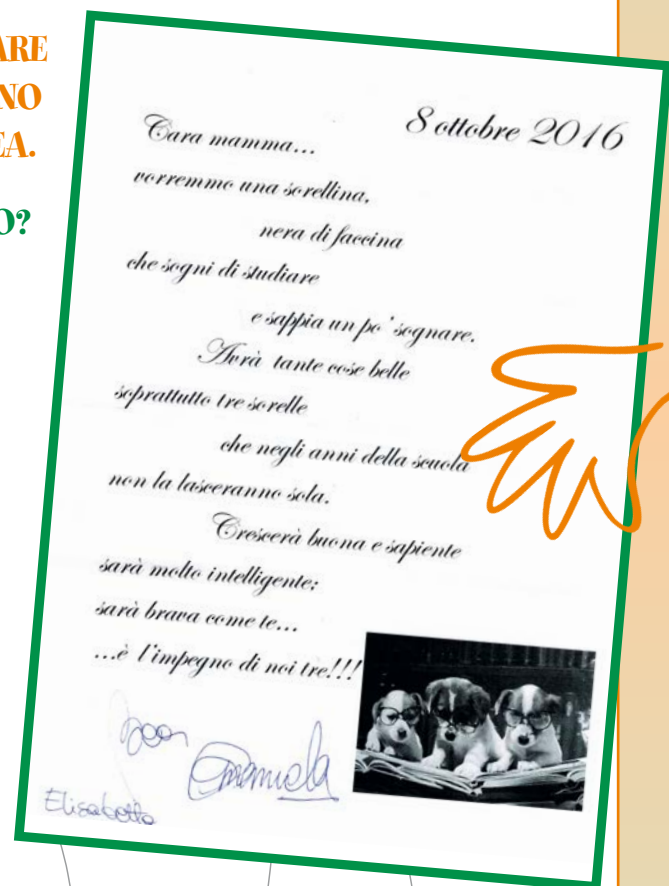 ARE
NO
EA.
O?
8 ottobre 2016
Cara mamma...
vorremmo una sorellina,
nera di faccina
che sogni di studiare
e sappia un po' sognare.
Avrà tante cose belle
soprattutto tre sorelle
che negli anni della scuola
non la lasceranno sola.
Crescerà buona e sapiente
sarà molto intelligente;
sarà brava come te...
...è l'impegno di noi tre!!!
Emanuela
Elisabetta